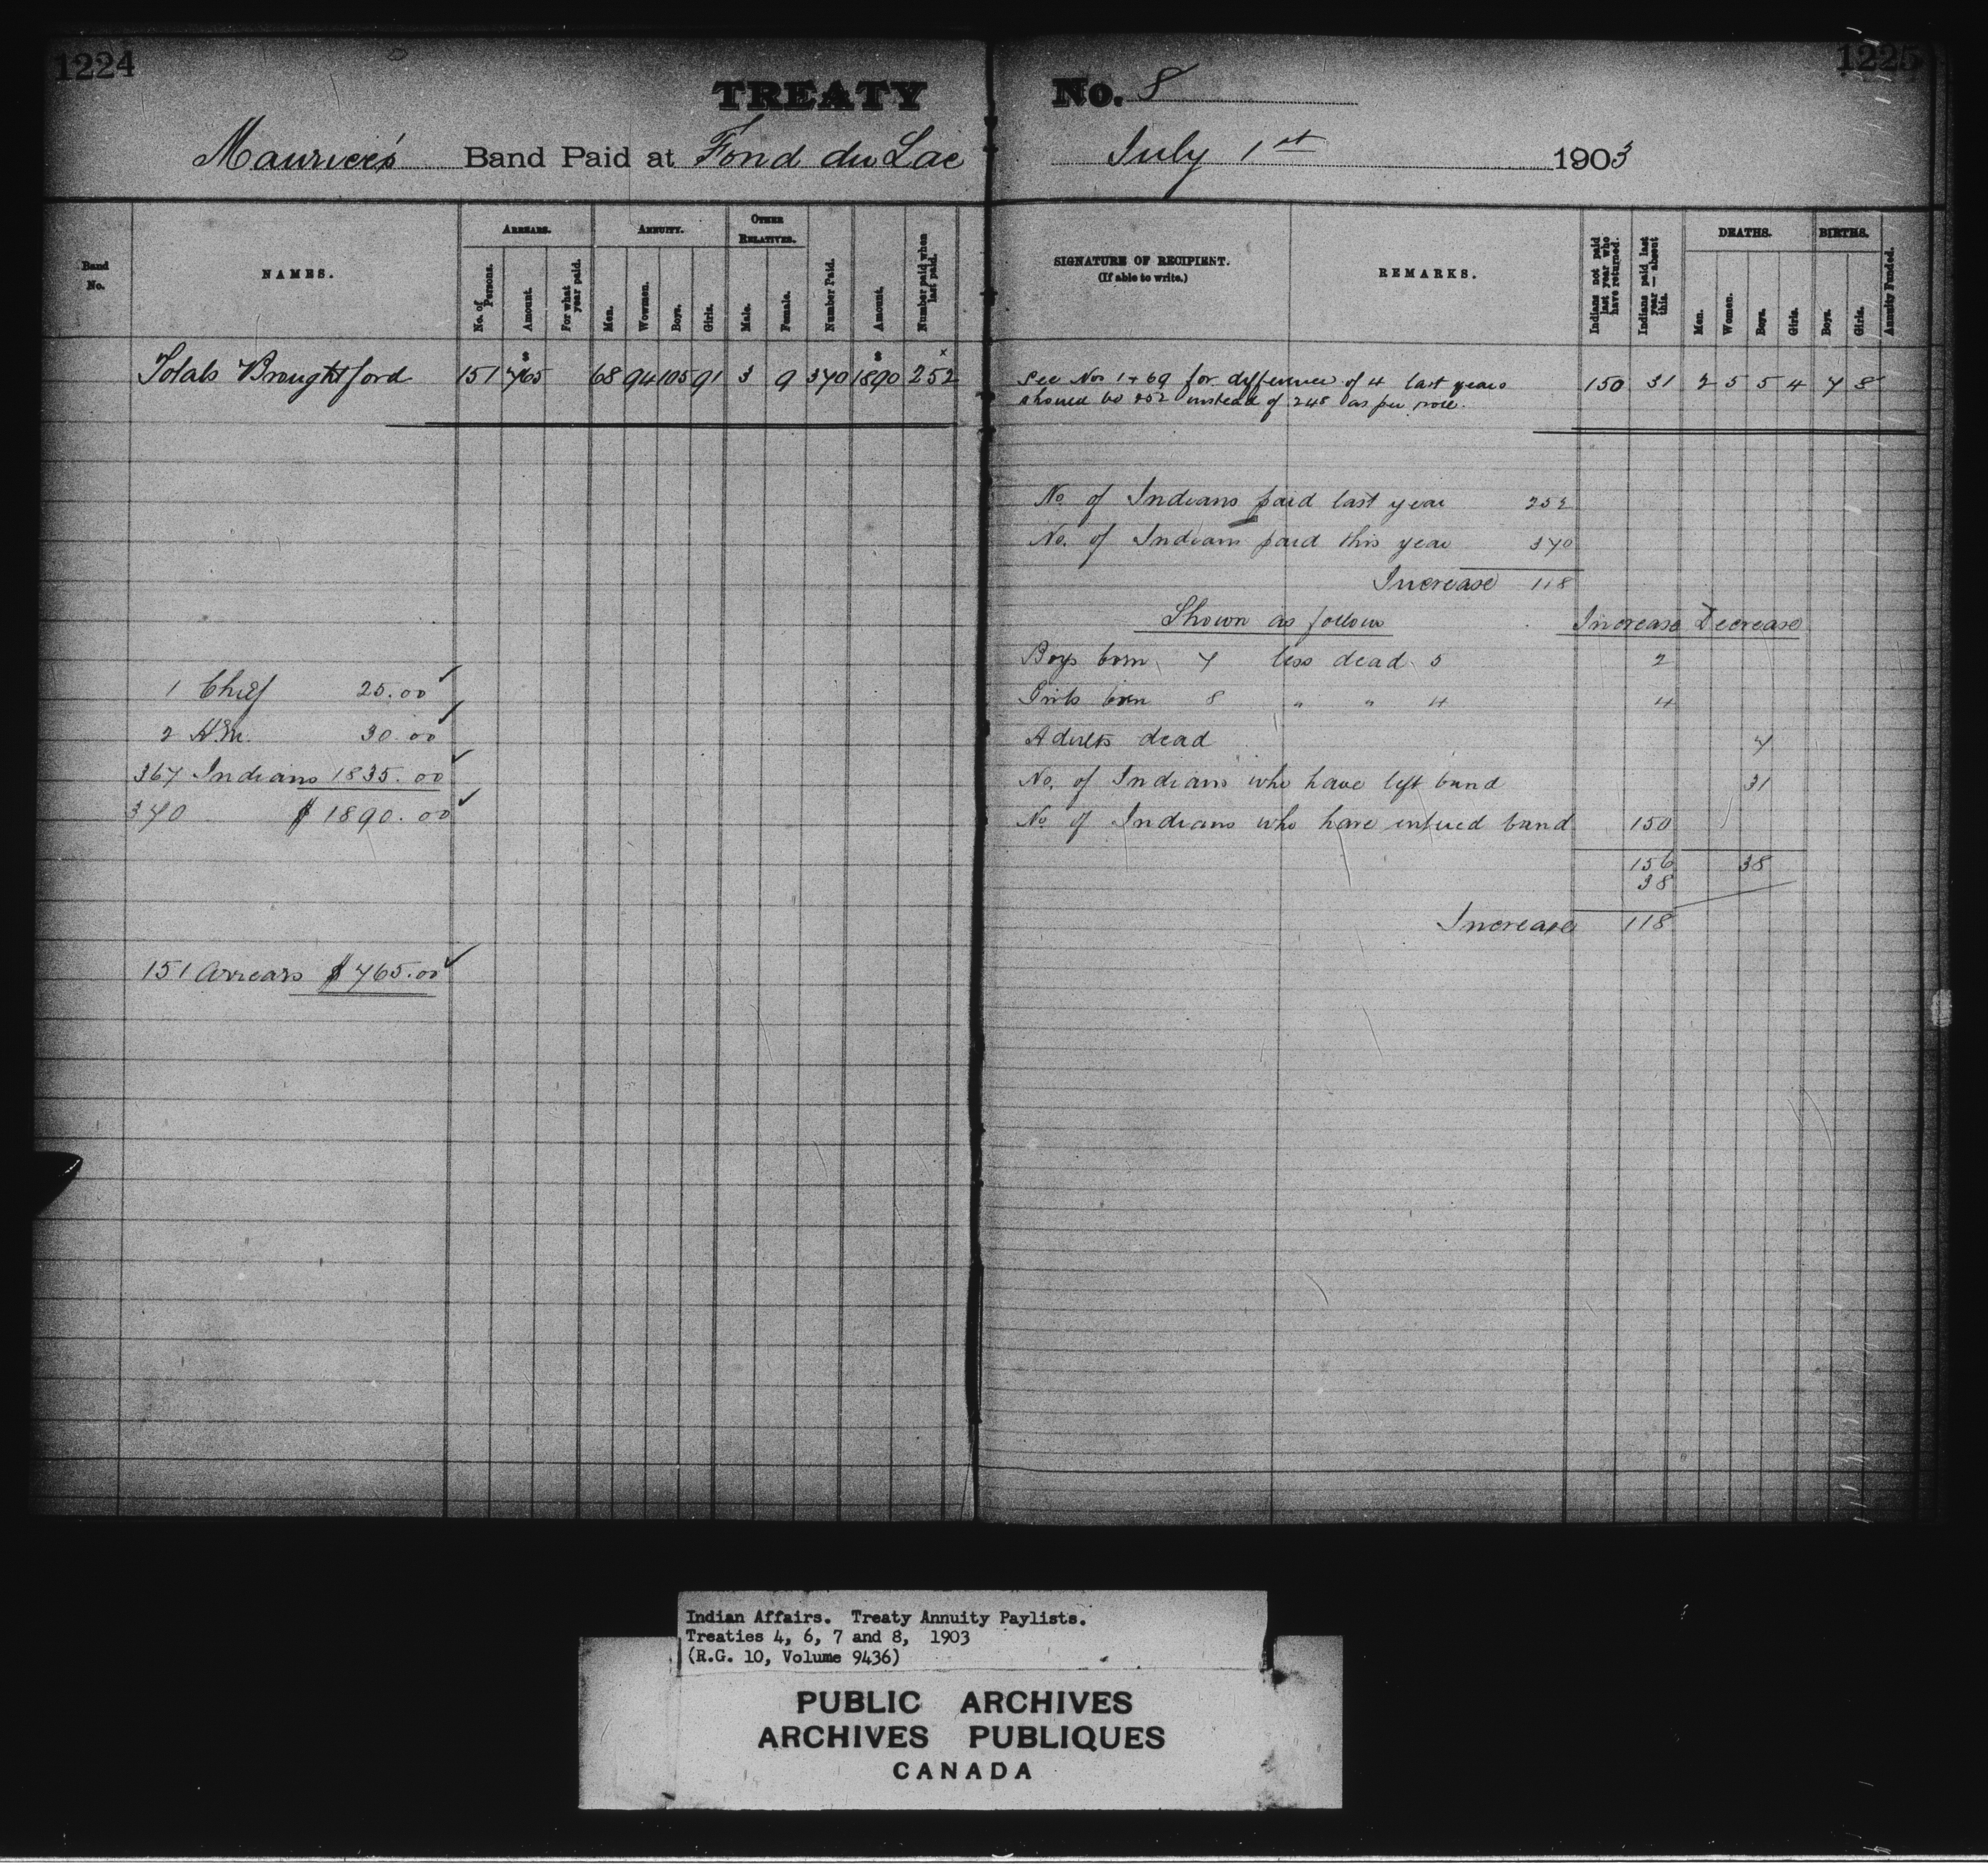 1224
TREATY
Maurice's Band Paid at Fond du Lac
Band No.
NAMES.
ARREARS.
No. of Persons.
Amount.
For what year paid.
ANNUITY.
Men.
Women.
Boys.
Girls.
OTHER RELATIVES.
Male.
Female.
Number Paid.
Amount.
Number paid when last paid.
$ $ x
Totals Brought ford 151 765 68 94 105 91 3 9 370 1890 252
1 Chief 25.00 ✓
2 H.M. 30.00 ✓
367 Indians 1835.00 ✓
370 $ 1890.00 ✓
151 Arrears $ 765.00 ✓
1225
No. 8
July 1st 1903
SIGNATURE OF RECIPIENT.
(If able to write.)
REMARKS.
Indians not paid last year who have returned.
Indians paid last year — absent this.
DEATHS.
Men.
Women.
Boys.
Girls.
BIRTHS.
Boys.
Girls.
Annuity Funded.
See Nos 1 + 69 for difference of 4 last years 150 31 2 5 5 4 7 8
should be 252 instead of 248 as per
No. of Indians paid last year 252
No. of Indians paid this year 370
Increase 118
Shown as follow Increase Decrease
Boys born 7 less dead 5 2
Girls born 8 " " 4 4
Adults dead 7
No. of Indians who have left band 31
No. of Indians who have entered band 150
156 38
38
Increase 118
Indian Affairs. Treaty Annuity Paylists.
Treaties 4, 6, 7 and 8, 1903
(R.G. 10, Volume 9436)
PUBLIC ARCHIVES
ARCHIVES PUBLIQUES
CANADA